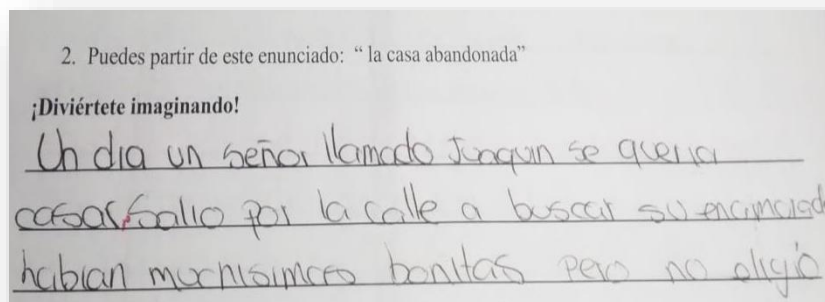 2. Puedes partir de este enunciado: “ la casa abandonada”
¡Diviértete imaginando!
Un dia un señor llamado Juaquin se queria
casar, Salio por la calle a buscar su
habian muchisimas bonitas pero no eligió